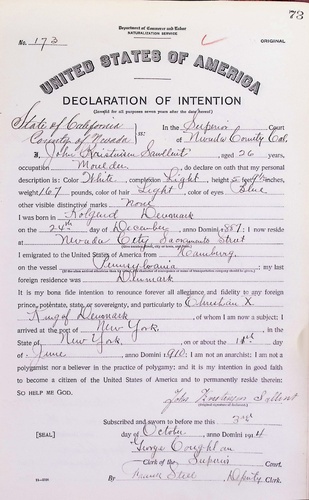 73
Department of Commerce and Labor
NATURALIZATION SERVICE
No. 173
ORIGINAL
UNITED STATES OF AMERICA
DECLARATION OF INTENTION
(Invalid for all purposes seven years after the date hereof)
State of California
County of Nevada
ss:
In the Superior Court
of Nevada County Cal.
I, John Kristinsen, aged 26 years,
occupation Moulder, do declare on oath that my personal
description is: Color White, complexion Light, height 5 feet inches,
weight 167 pounds, color of hair Light, color of eyes Blue
other visible distinctive marks None
I was born in Denmark
on the 24th day of December, anno Domini 1887; I now reside
at Nevada City Sacramento Street
I emigrated to the United States of America from Hamburg
on the vessel Pennsylvania; my last
foreign residence was Denmark
It is my bona fide intention to renounce forever all allegiance and fidelity to any foreign
prince, potentate, state, or sovereignty, and particularly to Christian X
King of Denmark, of whom I am now a subject; I
arrived at the port of New York, in the
State of New York, on or about the day
of June, anno Domini 1910; I am not an anarchist; I am not a
polygamist nor a believer in the practice of polygamy; and it is my intention in good faith
to become a citizen of the United States of America and to permanently reside therein:
SO HELP ME GOD.
John
(Original signature of declarant)
Subscribed and sworn to before me this
[SEAL]
day of October, anno Domini 1914
George Coughlan
Clerk of the Superior Court.
By Steel, Deputy Clerk.